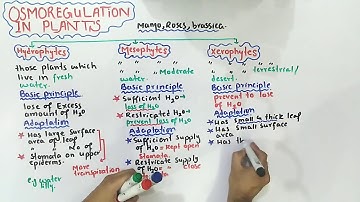 OSMOREGULATION
IN PLANTS
Mango, Roses, brassica.
Hydrophytes
those plants which
live in fresh
water.
Basic principle
lose of Excess
amount of H₂O
Adaptation
* Has large surface
area of leaf
* " " No of
Stomata on upper
epidermis.
More transpiration
eg water
lilly.
Mesophytes
" " " "
" " " Moderate
water.
Basic Principle
* Sufficient H₂O→
* Restricted H₂O→
prevent loss of H₂O
Adaptation
* Sufficient supply
of H₂O = Kept open
stomata
* Restricte Supply
of H₂O = close
Xerophytes
" " " "
" " " terrestrial/
desert.
Basic Principle
prevent to lose
of H₂O
Adaptation
* Has small & thick leaf
* Has small surface
area
* Has th